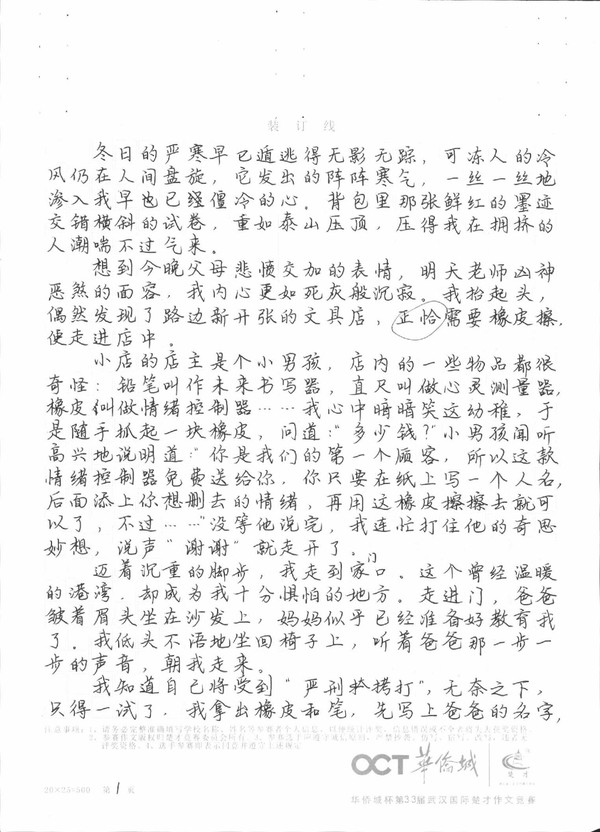 装 订 线
冬日的严寒早已遁逃得无影无踪，可冻人的冷
风仍在人间盘旋，它发出的阵阵寒气，一丝一丝地
渗入我早也已经僵冷的心。背包里那张鲜红的墨迹
交错横斜的试卷，重如泰山压顶，压得我在拥挤的
人潮喘不过气来。
想到今晚父母悲愤交加的表情，明天老师凶神
恶煞的面容，我内心更如死灰般沉寂。我抬起头，
偶然发现了路边新开张的文具店，正恰需要橡皮擦，
便走进店中。
小店的店主是个小男孩，店内的一些物品都很
奇怪：铅笔叫作未来书写器，直尺叫做心灵测量器，
橡皮叫做情绪控制器……我心中暗暗笑这幼稚，于
是随手抓起一块橡皮，问道：“多少钱？”小男孩闻听
高兴地说明道：“你是我们的第一个顾客，所以这款
情绪控制器免费送给你，你只要在纸上写一个人名，
后面添上你想删去的情绪，再用这橡皮擦擦去就可
以了，不过……”没等他说完，我连忙打住他的奇思
妙想，说声“谢谢”就走开了。
迈着沉重的脚步，我走到家门口。这个曾经温暖
的港湾，却成为我十分惧怕的地方。走进门，爸爸
皱着眉头坐在沙发上，妈妈似乎已经准备好教育我
了。我低头不语地坐回椅子上，听着爸爸那一步一
步的声音，朝我走来。
我知道自己将受到“严刑拷打”，无奈之下，
只得一试了，我拿出橡皮和笔，先写上爸爸的名字，
注意事项：1、请务必完整准确填写学校名称、
20×25=500 第 1 页
OCT 华侨城
楚才
华侨城杯第33届武汉国际楚才作文竞赛